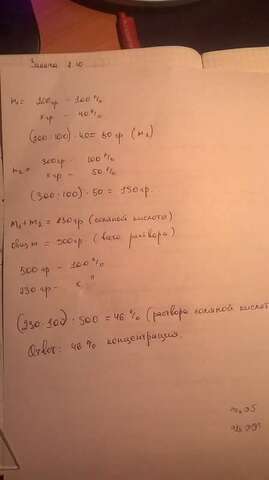 Задача 2.10
m₁ = 200гр - 100%
x гр - 40%
(200:100)·40 = 80гр (m₁)
m₂ = 300гр - 100%
x гр - 50%
(300:100)·50 = 150гр.
m₁ + m₂ = 230гр (соляной кислоты)
общ m = 500гр (всего раствора)
500гр - 100%
230гр - x "
(230·100) : 500 = 46% (раствора соляной кислот
Ответ: 46% концентрация.